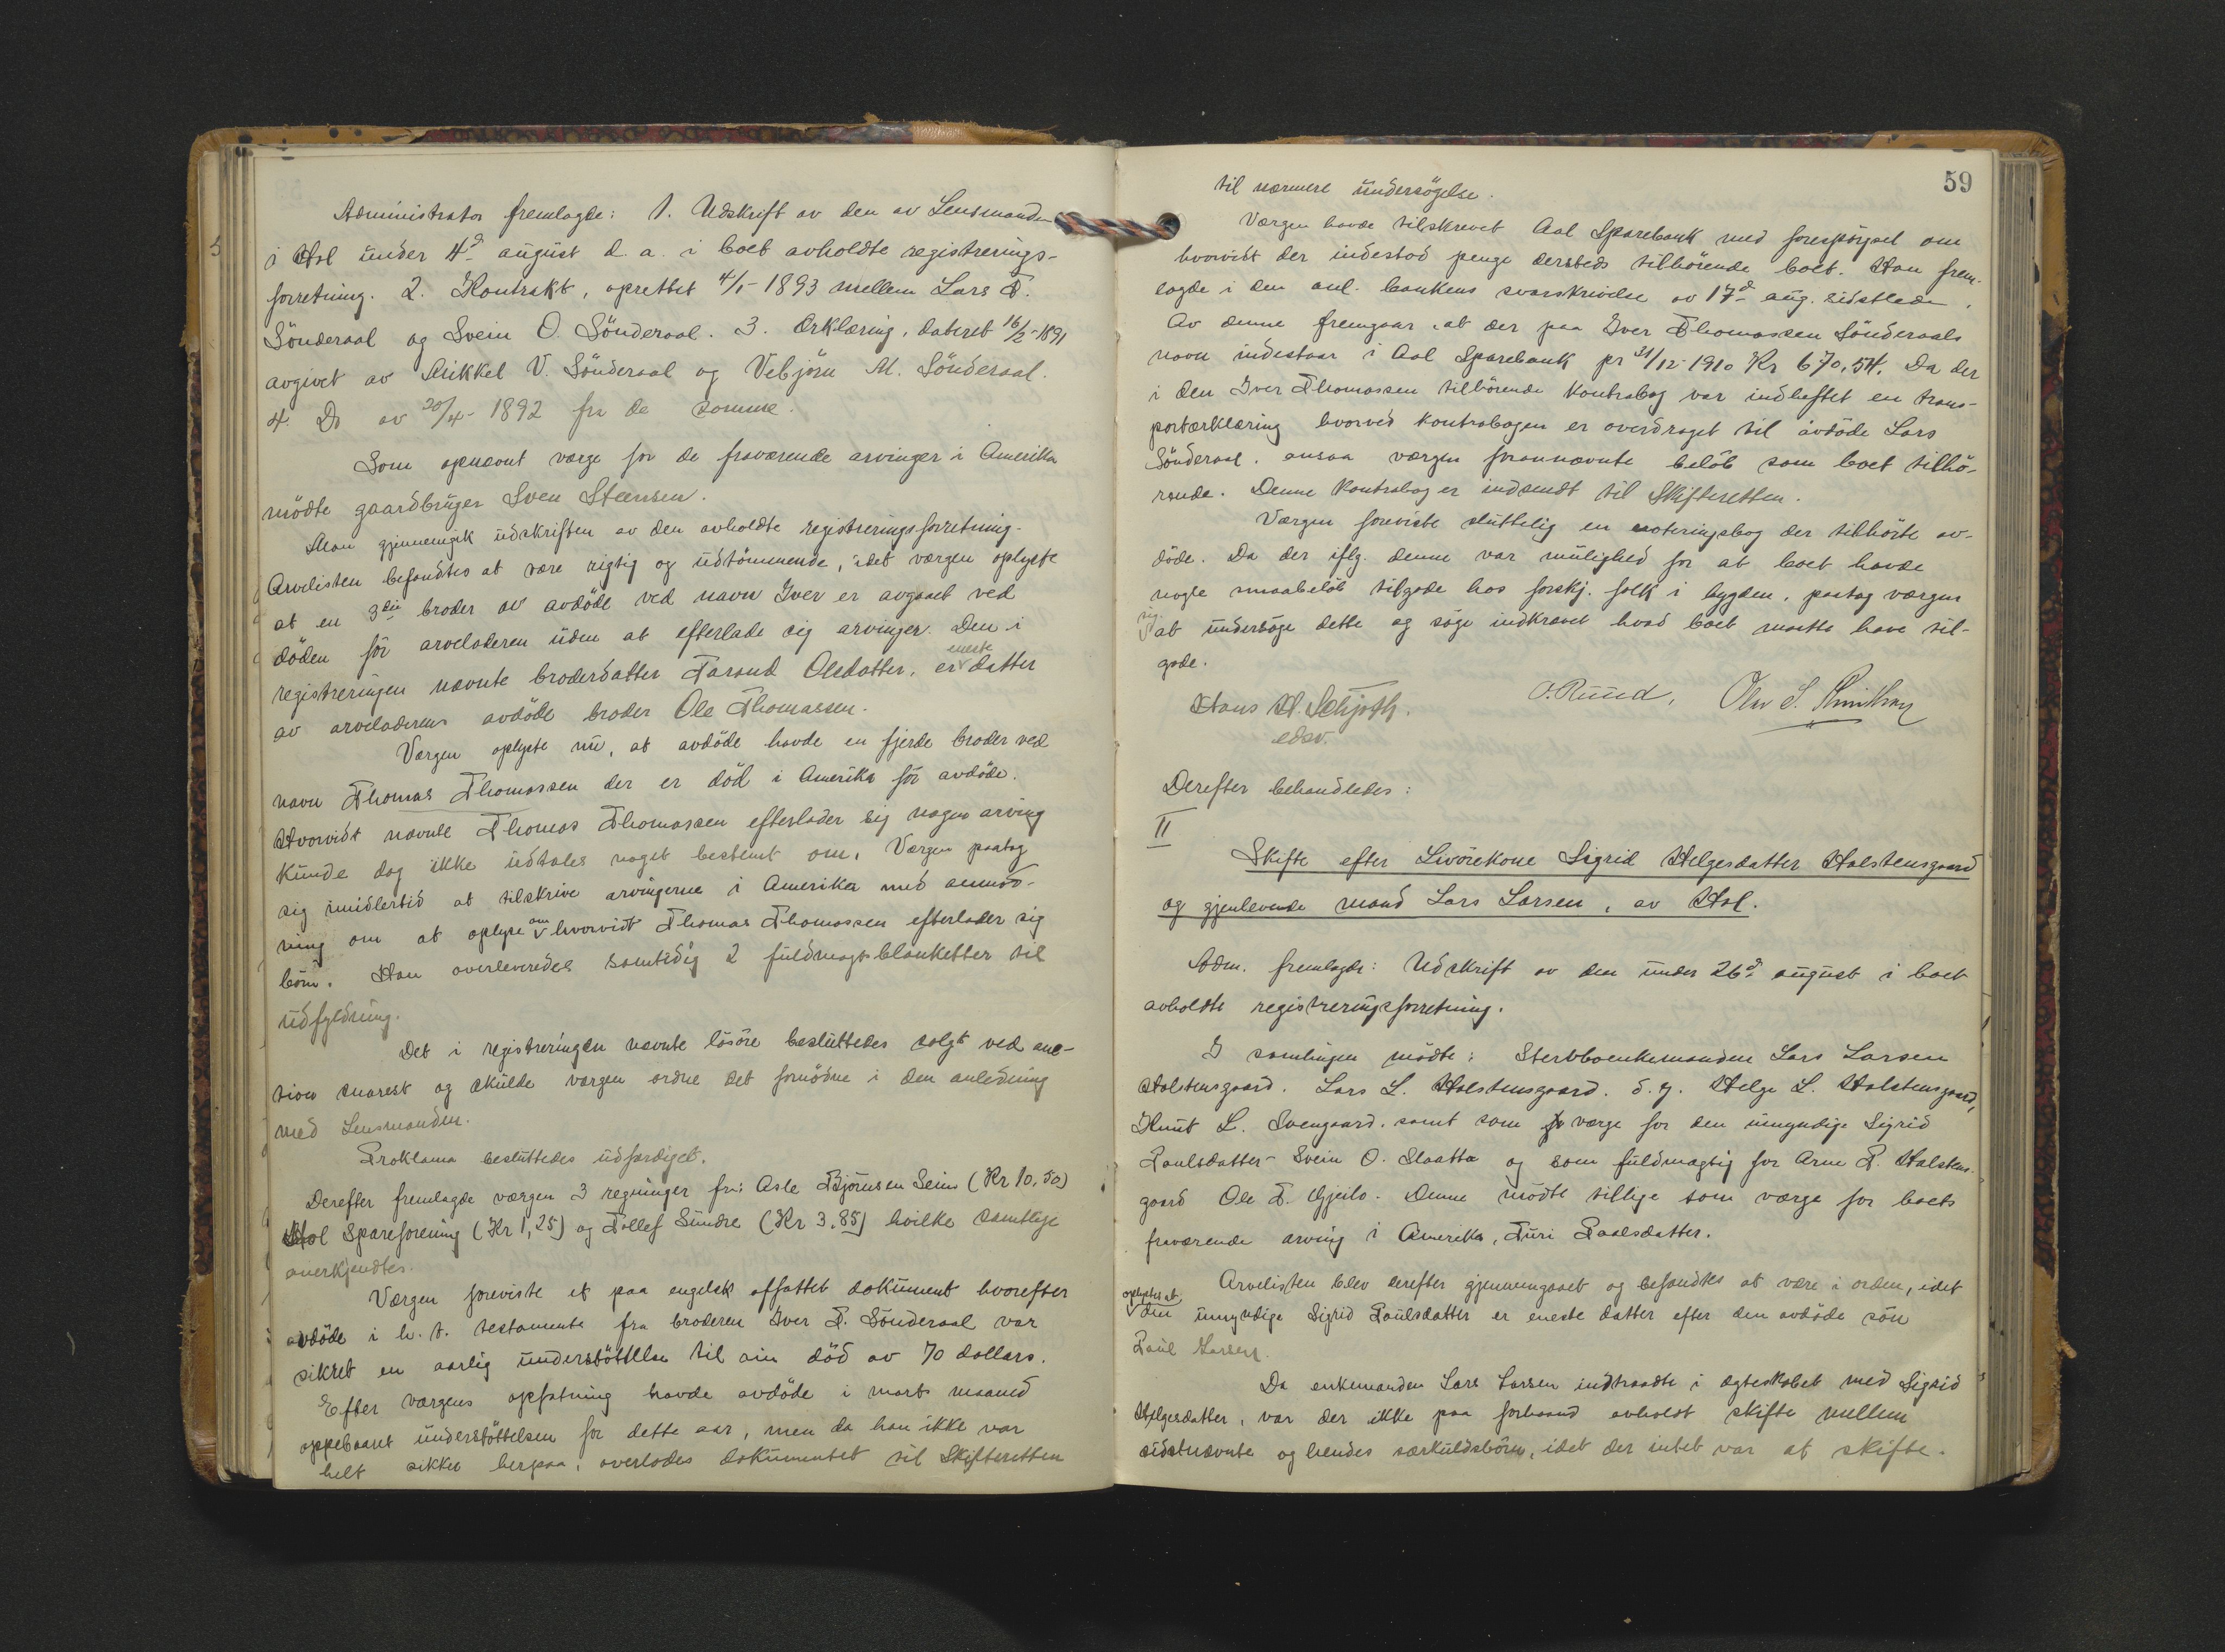 Administrator fremlagde: 1. Udskrift av den av Lensmanden
i Hol under 4d august d. a. i boet avholdte registrerings-
forretning. 2. Kontrakt, oprettet 4/1-1893 mellem Lars T.
Sønderaal og Svein O. Sønderaal. 3. Erklæring, dateret 16/2-1891
avgivet av Mikkel V. Sønderaal og Vebjørn M. Sønderaal.
4. Do av 20/4-1892 fra de samme.
Som opnævnt værge for de fraværende arvinger i Amerika
mødte gaardbruger Sven Steensen.
Man gjennemgik udskriften av den avholdte registreringsforretning.
Arvelisten befandtes at være rigtig og udtømmende, idet værgen oplyste
at en 3die broder av avdøde ved navn Iver er avgaaet ved
døden før arveladeren uden at efterlade sig arvinger. Den i
registreringen nævnte broderdatter Tarand Olsdatter, er eneste datter
av arveladerens avdøde broder Ole Thomassen.
Værgen oplyste nu, at avdøde havde en fjerde broder ved
navn Thomas Thomassen der er død i Amerika før avdøde.
Hvorvidt nævnte Thomas Thomassen efterlader sig nogen arving
kunde dog ikke udtales noget bestemt om. Værgen paatog
sig imidlertid at tilskrive arvingerne i Amerika med anmod-
ning om at oplyse om hvorvidt Thomas Thomassen efterlader sig
børn. Han overleveredes samtidig 2 fuldmagtsblanketter til
udfyldning.
Det i registreringen nævnte løsøre besluttedes solgt ved auk-
tion snarest og skulde værgen ordne det fornødne i den anledning
med Lensmanden.
Proklama besluttedes udfærdiget.
Derefter fremlagde værgen 3 regninger fra: Asle Bjørnsen Seim (Kr 10,50)
Hol Spareforening (Kr 1,25) og Tollef Sundre (Kr 3,85) hvilke samtlige
anerkjendtes.
Værgen foreviste et paa engelsk affattet dokument hvorefter
avdøde i h. t. testamente fra broderen Iver T. Sønderaal var
sikret en aarlig understøttelse til sin død av 70 dollars.
Efter værgens opfatning havde avdøde i marts maaned
oppebaaret understøttelsen for dette aar, men da han ikke var
helt sikker herpaa, overlodes dokumentet til Skifteretten
59
til nærmere undersøgelse.
Værgen havde tilskrevet Aal Sparebank med forespørgsel om
hvorvidt der indestod penge dersteds tilhørende boet. Han frem-
lagde i den anl. bankens svarskrivelse av 17d aug. sidstleden.
Av denne fremgaar, at der paa Iver Thomassen Sønderaals
navn indestaar i Aal Sparebank pr 31/12-1910 Kr 670,54. Da der
i den Iver Thomassen tilhørende kontrabog var indheftet en trans-
porterklæring hvorved kontrabogen er overdraget til avdøde Lars
Sønderaal, ansaa værgen forannævnte beløb som boet tilhø-
rende. Denne kontrabog er indsendt til Skifteretten.
Værgen foreviste sluttelig en noteringsbog der tilhørte av-
døde. Da der iflg. denne var mulighed for at boet havde
nogle smaabeløb tilgode hos forskj. folk i bygden, paatog værgen
sig at undersøge dette og søge indkrævet hvad boet maatte have til-
gode.
Hans H. Schjøth. O. Ruud,
edsv.
Derefter behandledes:
II
Skifte efter Livørekone Sigrid Helgesdatter Holstensgaard
og gjenlevende mand Lars Larsen, av Hol.
Adm. fremlagde: Udskrift av den under 26d august i boet
avholdte registreringsforretning.
I samlingen mødte: Stervboenkemanden Lars Larsen
Holstensgaard. Lars L. Holstensgaard. d. y. Helge L. Holstensgaard,
Knut L. Svengaard, samt som værge for den umyndige Sigrid
Paulsdatter - Svein O. Slaatta og som fuldmægtig for Arne P. Holstens-
gaard Ole T. Gjeilo. Denne mødte tillige som værge for boets
fraværende arving i Amerika, Turi Paalsdatter.
Arvelisten blev derefter gjennemgaaet og befandtes at være i orden, idet
oplystes at den umyndige Sigrid Paulsdatter er eneste datter efter den avdøde søn
Paul Larsen.
Da enkemanden Lars Larsen indtraadte i ægteskabet med Sigrid
Helgesdatter, var der ikke paa forhaand avholdt skifte mellem
sidstnævnte og hendes særkuldsbørn, idet der intet var at skifte.